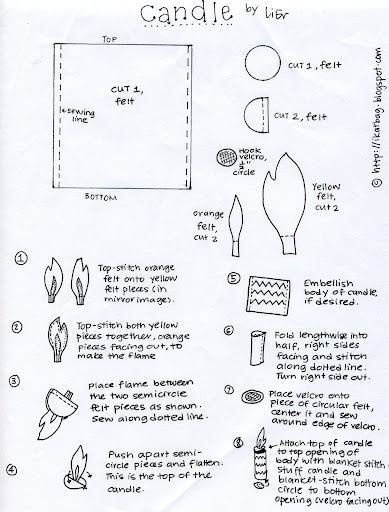 candle by LiEr
TOP
CUT 1,
felt
sewing
line
BOTTOM
CUT 1, felt
CUT 2, felt
Hook
velcro,
1/2"
circle
Yellow
felt,
cut 2
orange
felt,
cut 2
© http://ikatbag.blogspot.com
1
Top-stitch orange
felt onto yellow
felt pieces (in
mirror image).
2
Top-stitch both yellow
pieces together, orange
pieces facing out, to
make the flame
3
Place flame between
the two semicircle
felt pieces as shown.
Sew along dotted line.
4
Push apart semi-
circle pieces and flatten.
This is the top of the
candle.
5
Embellish
body of candle,
if desired.
6
Fold lengthwise into
half, right sides
facing and stitch
along dotted line.
Turn right side out.
7
Place velcro onto
piece of circular felt,
center it and sew
around edge of velcro.
8
Attach top of candle
to top opening of
body with blanket stitch.
Stuff candle and
blanket-stitch bottom
circle to bottom
opening (velcro facing out)